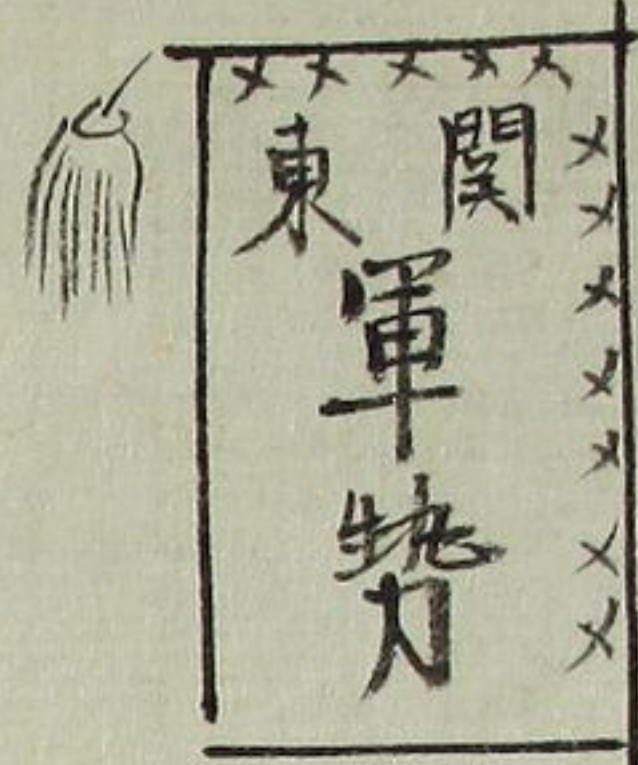 関東
軍
勢